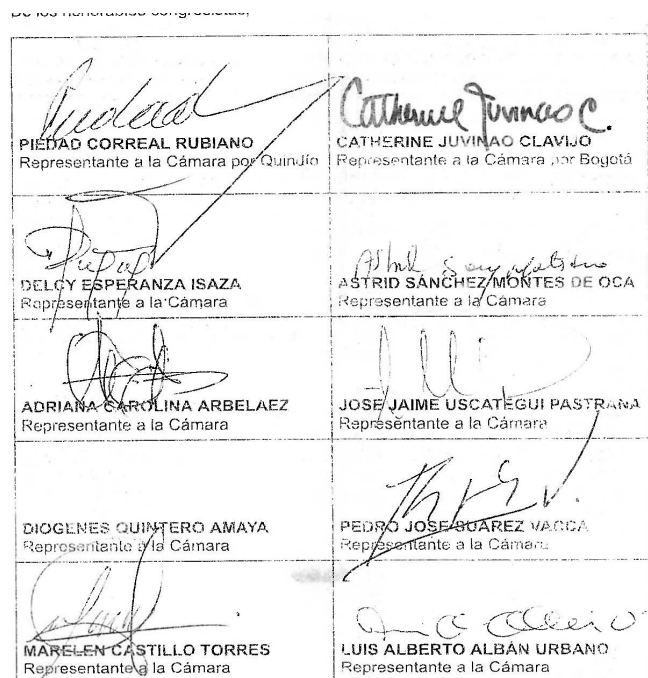 De los honorables congresistas,
Piedad
PIEDAD CORREAL RUBIANO
Representante a la Cámara por Quindío
Catherine Juvinao C.
CATHERINE JUVINAO CLAVIJO
Representante a la Cámara por Bogotá
DELCY ESPERANZA ISAZA
Representante a la Cámara
Astrid
ASTRID SÁNCHEZ MONTES DE OCA
Representante a la Cámara
ADRIANA CAROLINA ARBELAEZ
Representante a la Cámara
JOSE JAIME USCATEGUI PASTRANA
Representante a la Cámara
DIOGENES QUINTERO AMAYA
Representante a la Cámara
PEDRO JOSE SUAREZ VACCA
Representante a la Cámara
MARELEN CASTILLO TORRES
Representante a la Cámara
LUIS ALBERTO ALBÁN URBANO
Representante a la Cámara